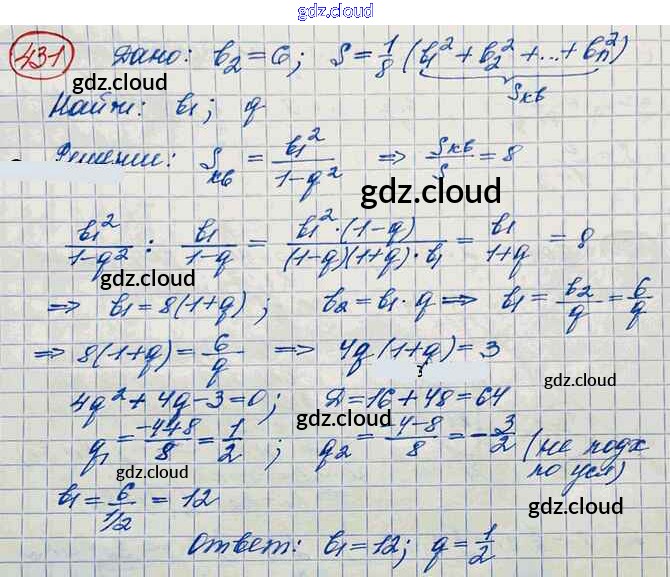 gdz.cloud
431 Дано: b₂ = 6; S = 1/8 (b₁² + b₂² + ... + bₙ²)
gdz.cloud Sкв
Найти: b₁; q
gdz.cloud
Решение: Sкв = b₁²/(1-q²) => Sкв/S = 8
gdz.cloud
b₁²/(1-q²) : b₁/(1-q) = b₁²·(1-q)/((1-q)(1+q)·b₁) = b₁/(1+q) = 8
gdz.cloud
=> b₁ = 8(1+q); b₂ = b₁·q => b₁ = b₂/q = 6/q
=> 8(1+q) = 6/q => 4q(1+q) = 3
gdz.cloud gdz.cloud
4q² + 4q - 3 = 0; D = 16 + 48 = 64
gdz.cloud
q₁ = (-4+8)/8 = 1/2; q₂ = (-4-8)/8 = -3/2 (не подх
по усл)
gdz.cloud
b₁ = 6/(1/2) = 12
gdz.cloud
Ответ: b₁ = 12; q = 1/2
gdz.cloud